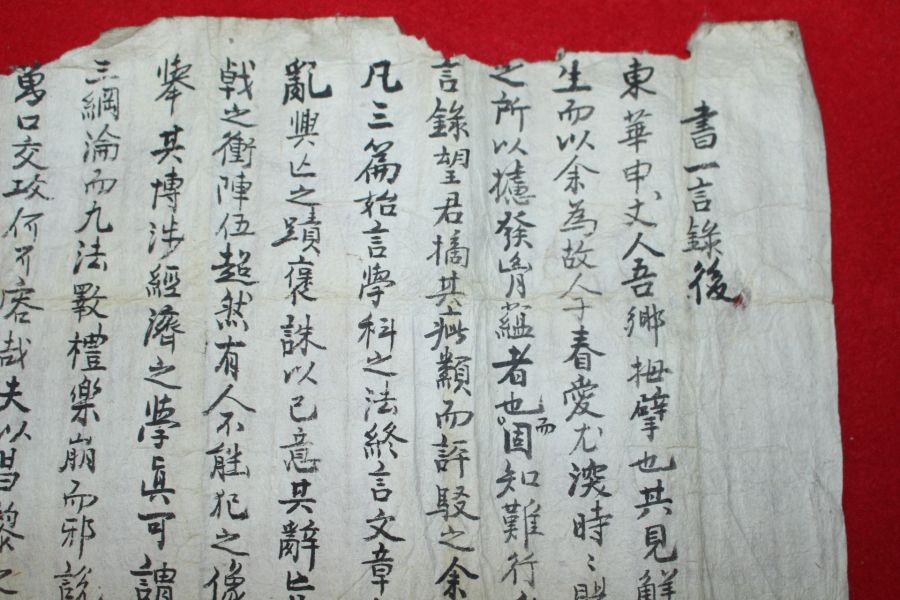 書一言錄後
東華申丈人吾鄉拇擘也其見解
生而以余為故人子眷愛尤深時〻
之所以攄發胷蘊者也而固知難行
言錄望君摘其疵纇而評駁之余
凡三篇始言學科之法終言文章
亂興亡之蹟褒誅以己意其辭
戟之衝陣伍超然有人不能犯之像
擧其博涉經濟之學眞可謂
三綱淪而九法斁禮樂崩而邪說
萬口交攻何不容哉夫以昌黎之